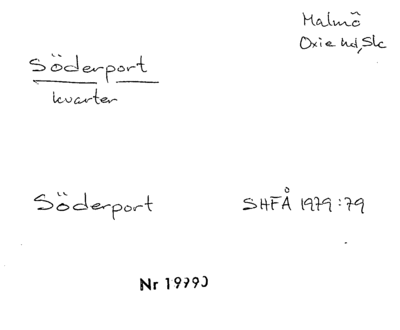 Malmö
Oxie hd, Sk
Söderport
kvarter
Söderport SHFÅ 1979:79
Nr